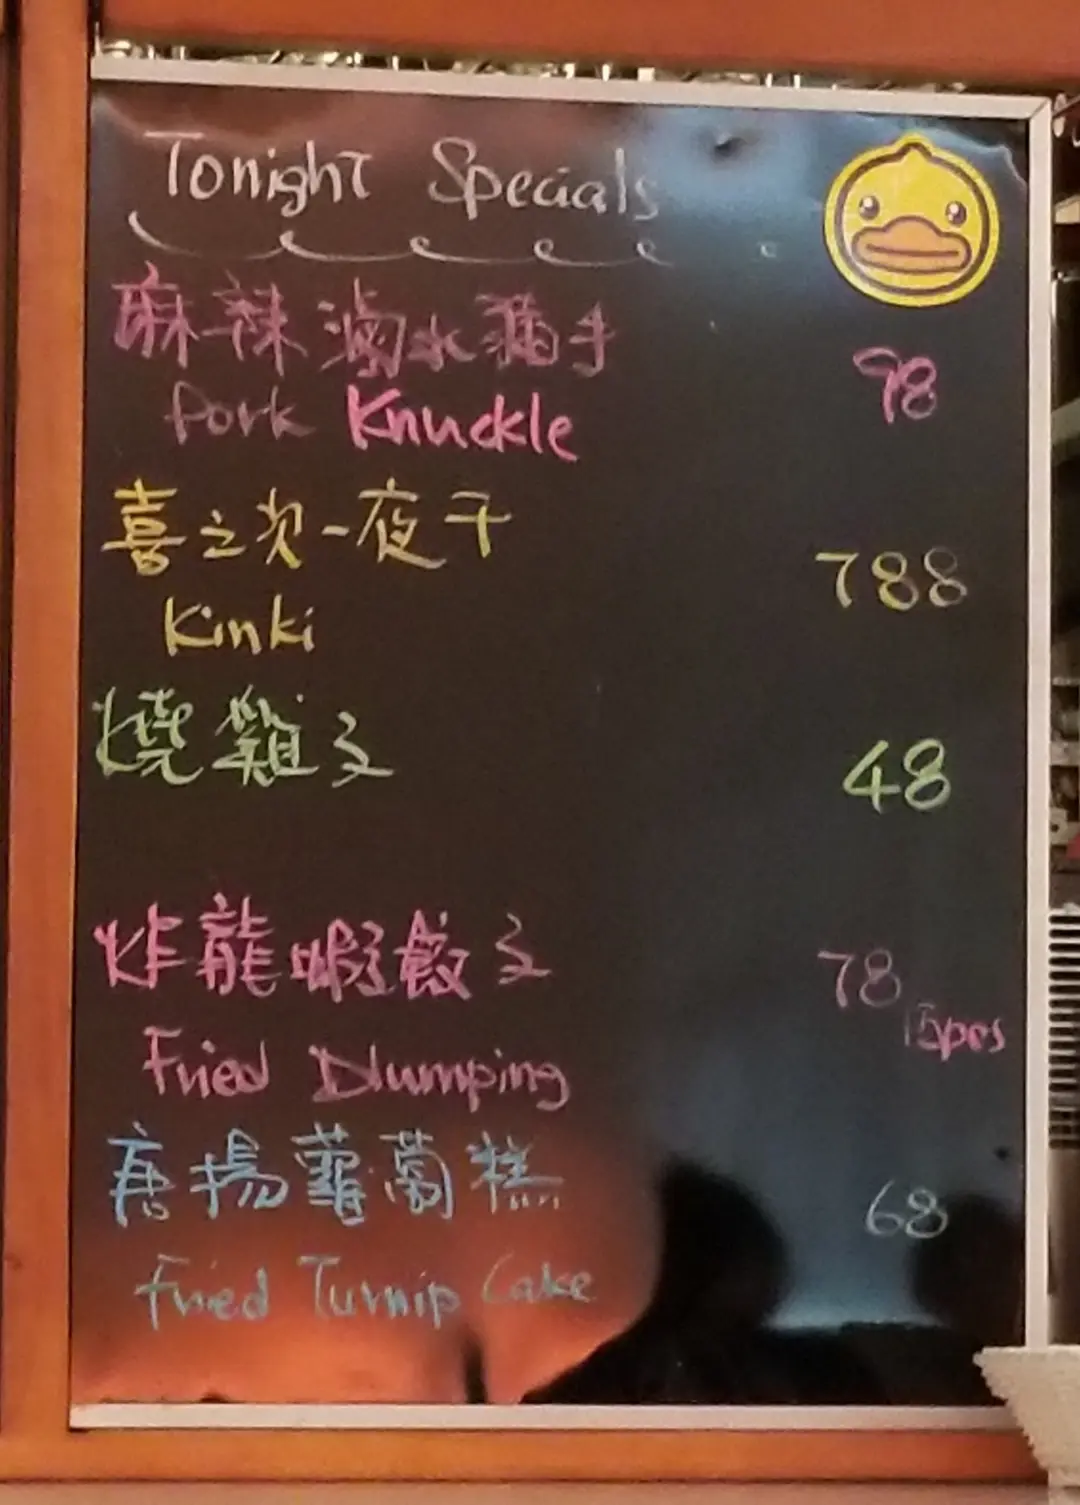 Tonight Specials
麻辣滷水豬手
98
Pork Knuckle
喜之次一夜干
788
Kinki
燒雞子
48
炸龍蝦餃子
78
15pcs
Fried Dlumping
唐揚蘿蔔糕
68
Fried Turnip Cake